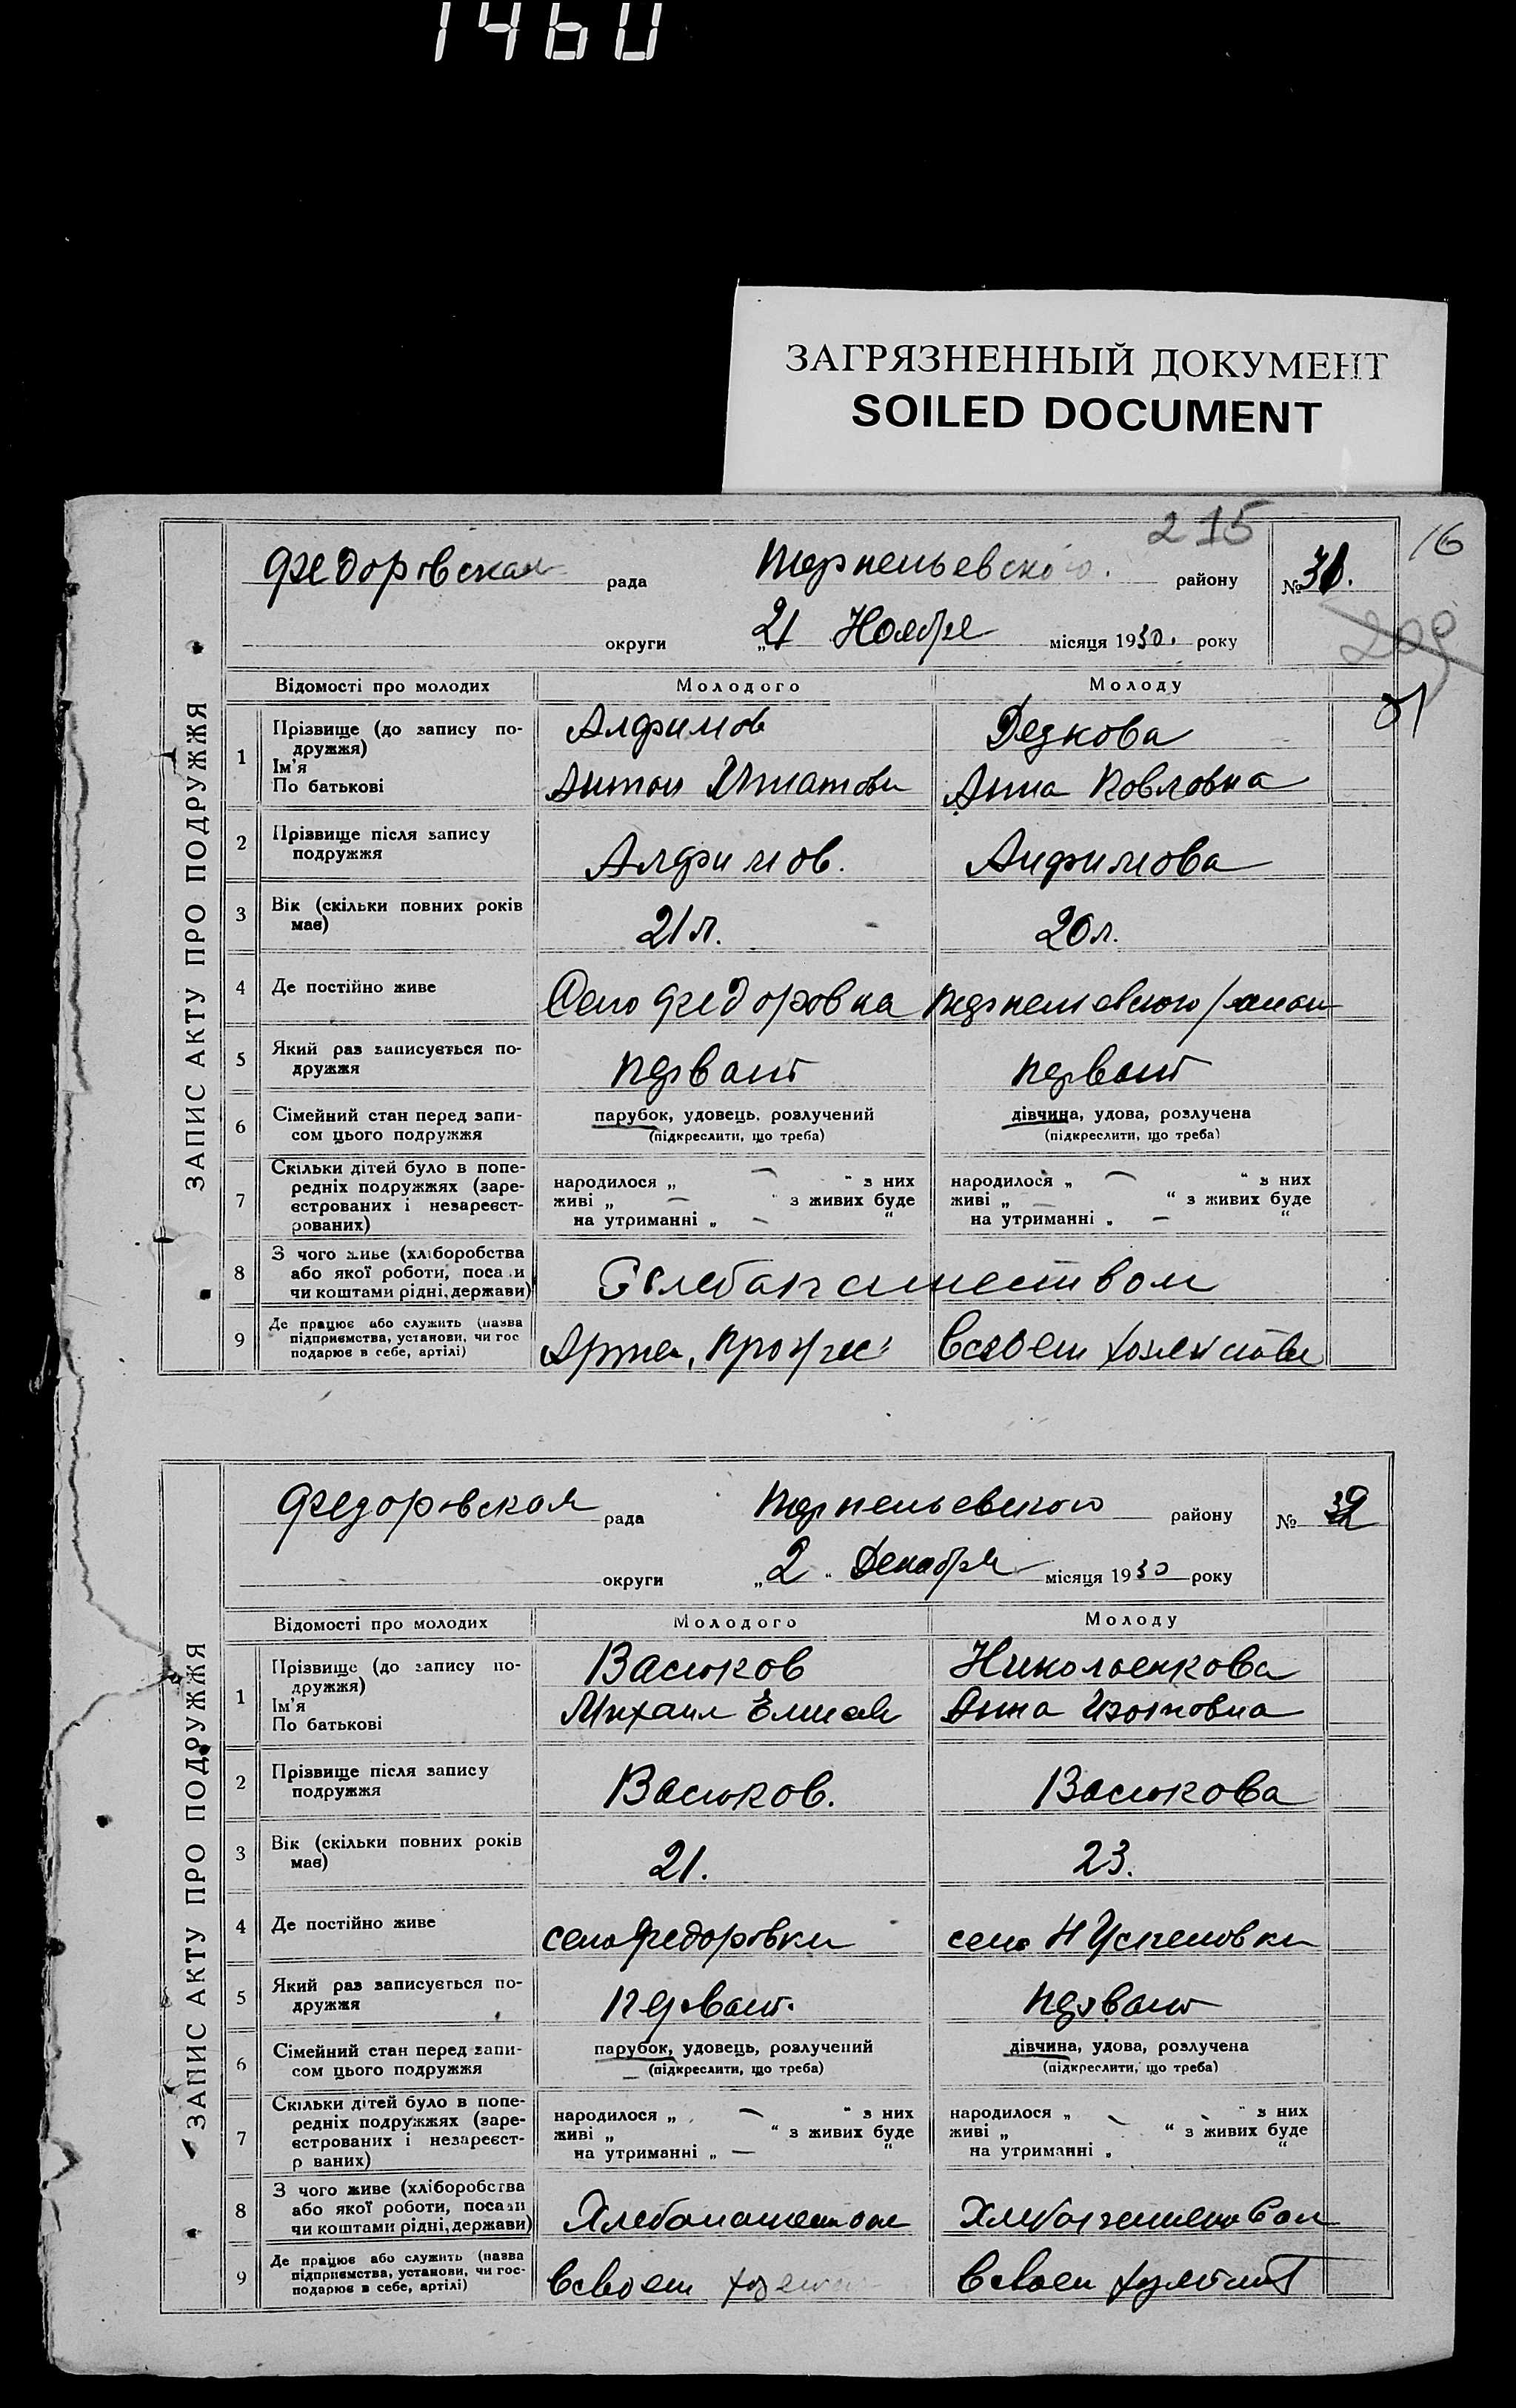 1460
ЗАГРЯЗНЕННЫЙ ДОКУМЕНТ
SOILED DOCUMENT
215
16
209
ЗАПИС АКТУ ПРО ПОДРУЖЖЯ
Федоровская рада Терпеньевского району № 31.
округи „21 Ноября місяця 1930. року
Відомості про молодих Молодого Молоду
1 Прізвище (до запису по-
дружжя)
Ім'я
По батькові
Алфимов Дедкова
Антон Анна Повловна
2 Прізвище після запису
подружжя
Алфимов. Алфимова
3 Вік (скільки повних років
має)
21 л. 20 л.
4 Де постійно живе Село Федоровка Терпеньевского район
5 Який раз записується по-
дружжя
первый первый
6 Сімейний стан перед запи-
сом цього подружжя
парубок, удовець, розлучений
(підкреслити, що треба)
дівчина, удова, розлучена
(підкреслити, що треба)
7 Скільки дітей було в попе-
редніх подружжях (заре-
єстрованих і незареєст-
рованих)
народилося „ — “ з них
живі „ — “ з живих буде
на утриманні „ — “
народилося „ — “ з них
живі „ — “ з живих буде
на утриманні „ — “
8 З чого живе (хліборобства
або якої роботи, посади
чи коштами рідні, держави)
Хлебопашеством
9 Де працює або служить (назва
підприємства, установи, чи гос
подарює в себе, артілі)
всвоем
ЗАПИС АКТУ ПРО ПОДРУЖЖЯ
Федоровская рада Терпеньевского району № 32
округи „2“ Декабря місяця 1930 року
Відомості про молодих Молодого Молоду
1 Прізвище (до запису по-
дружжя)
Ім'я
По батькові
Васюков Николаенкова
Михаил Анна Изотовна
2 Прізвище після запису
подружжя
Васюков. Васюкова
3 Вік (скільки повних років
має)
21. 23.
4 Де постійно живе село Федоровки село Н Успеновки
5 Який раз записується по-
дружжя
первый. первый
6 Сімейний стан перед запи-
сом цього подружжя
парубок, удовець, розлучений
(підкреслити, що треба)
дівчина, удова, розлучена
(підкреслити, що треба)
7 Скільки дітей було в попе-
редніх подружжях (заре-
єстрованих і незареєст-
р ваних)
народилося „ — “ з них
живі „ “ з живих буде
на утриманні „ — “
народилося „ — “ з них
живі „ “ з живих буде
на утриманні „ “
8 З чого живе (хліборобства
або якої роботи, посади
чи коштами рідні, держави)
Хлебопашеством Хлебопашеством
9 Де працює або служить (назва
підприємства, установи, чи гос-
подарює в себе, артілі)
всвоем всвоем